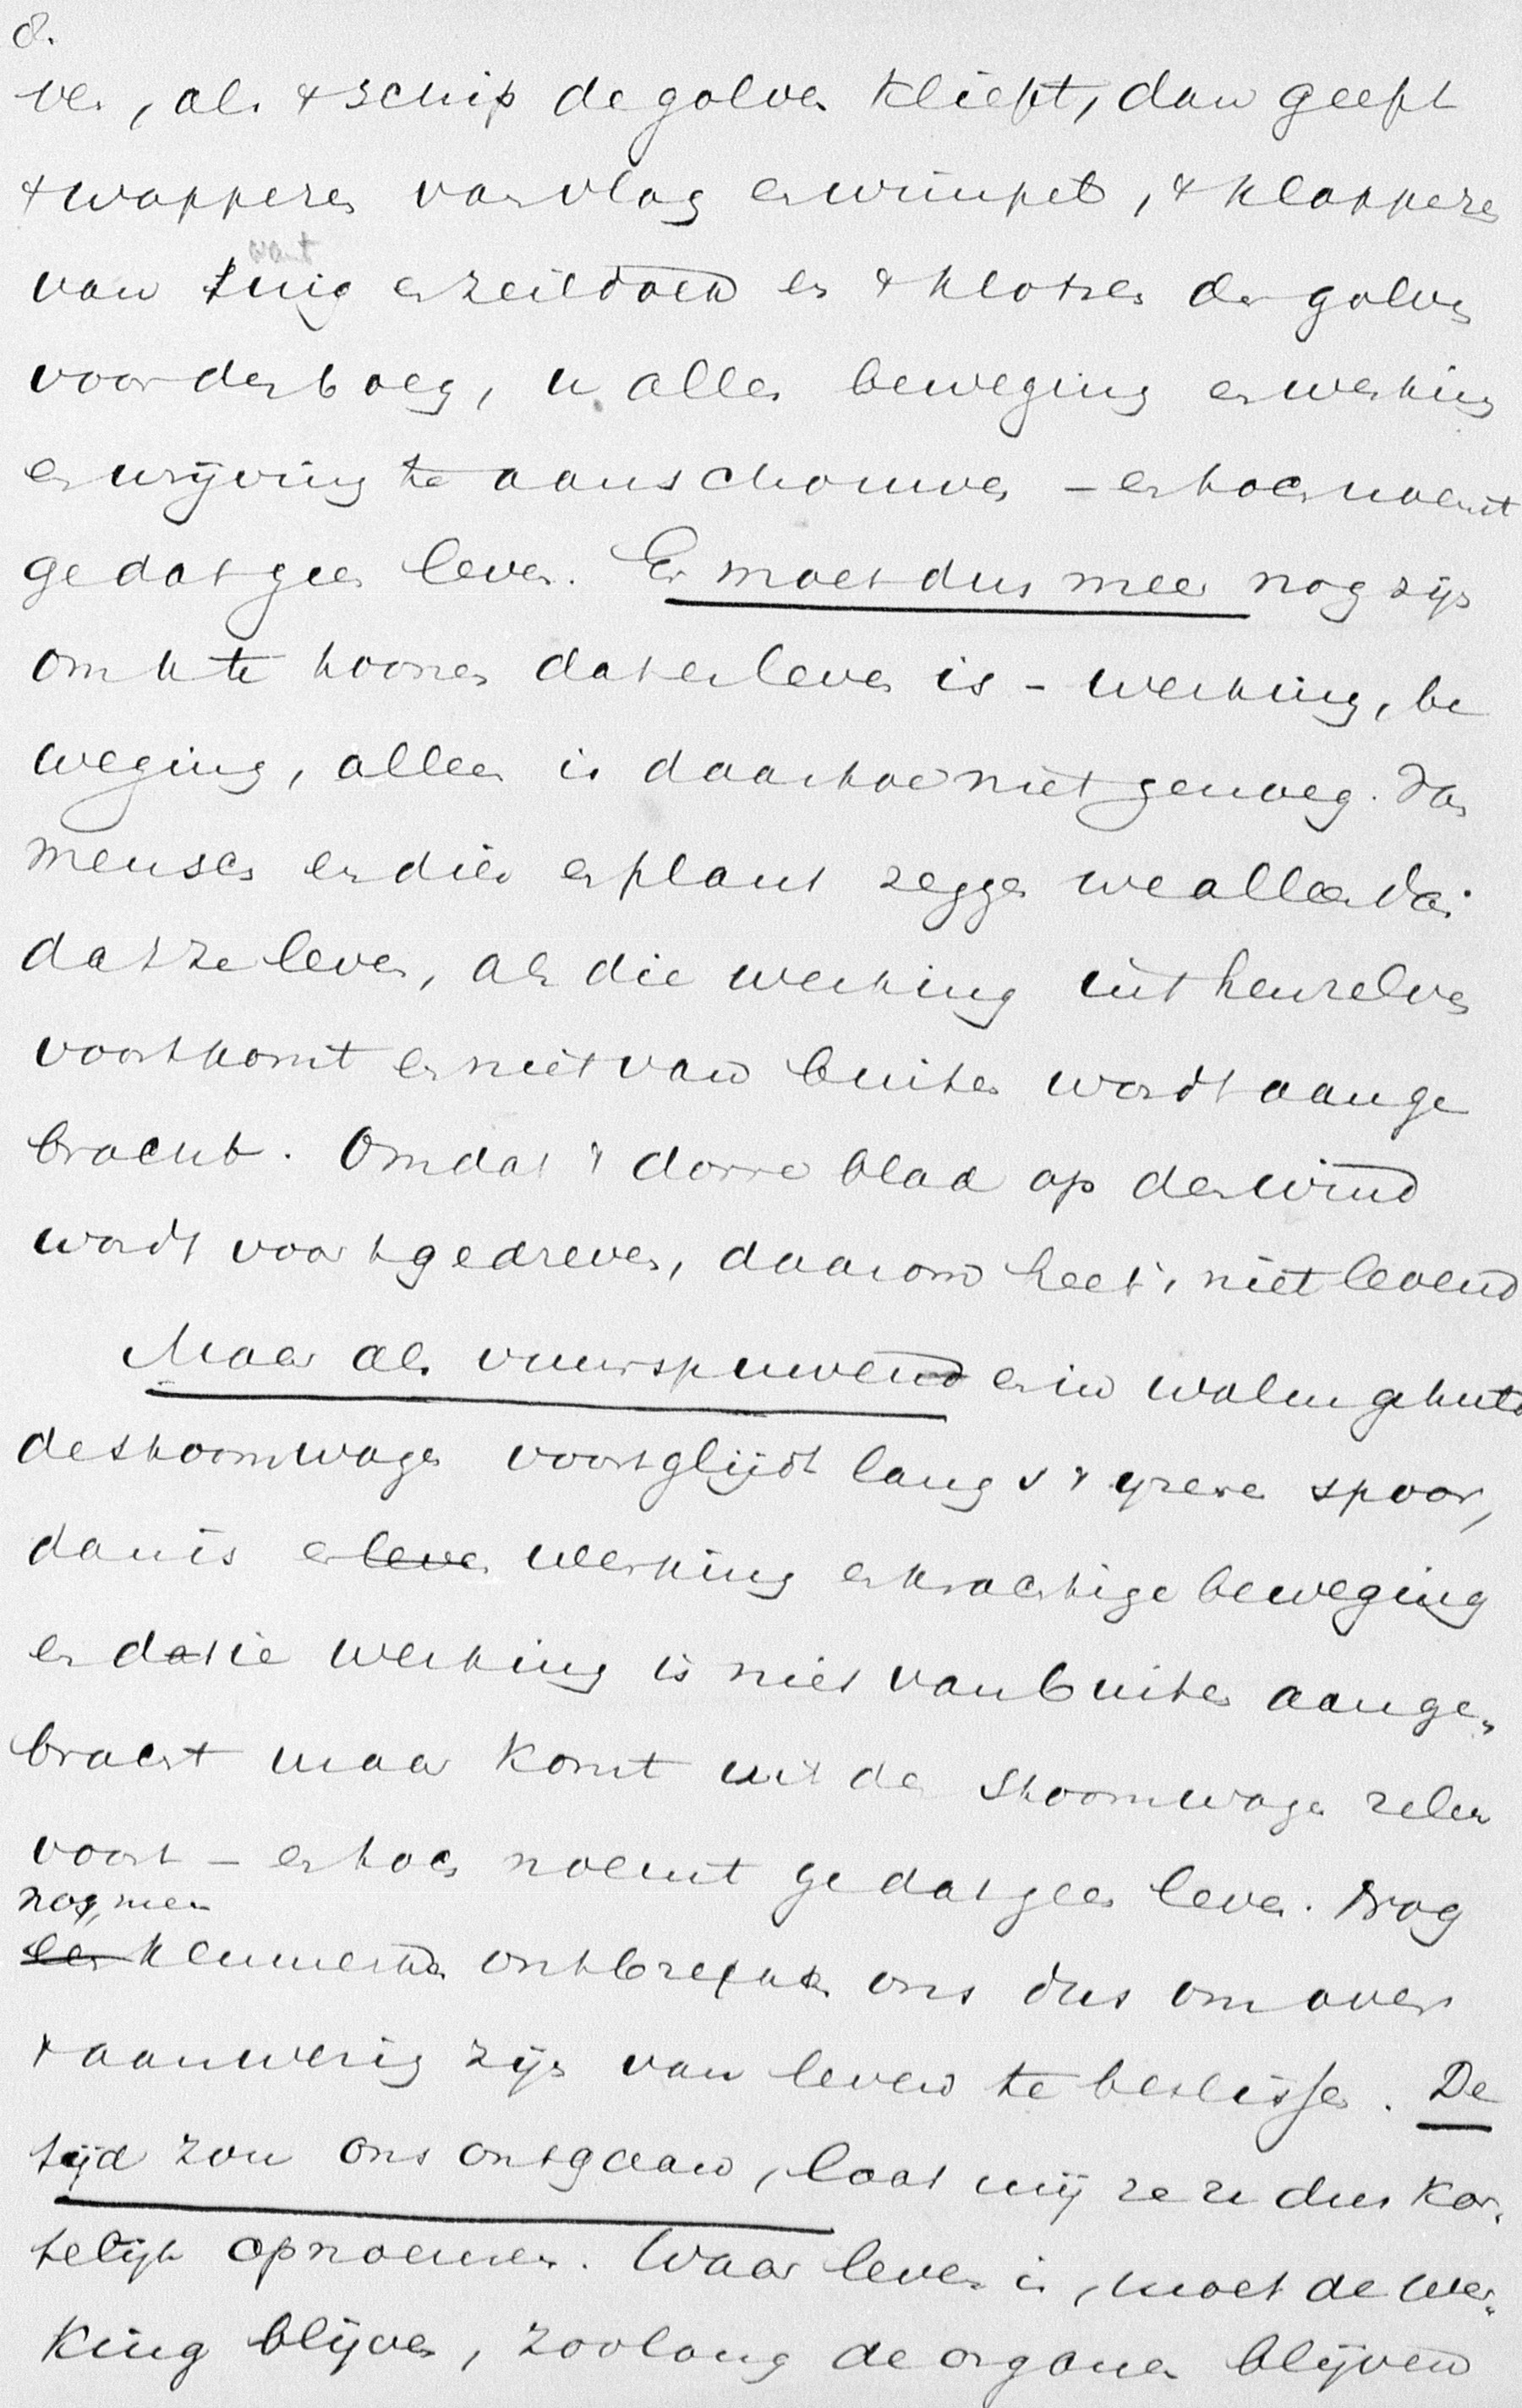 8.
ven, als 't schip de golven klieft, dan geeft
't wapperen van vlag en wimpel, 't klapperen
want
van tuig en zeildoek en 't klotsen der golven
voor den boeg, u alles beweging en werking
en wrijving te aanschouwen – en toch noemt
ge dat geen leven. Er moet dus meer nog zijn
om u te toonen dat er leven is – werking, be
weging, alleen is daartoe niet genoeg. Van
mensch en dier en plant zeggen we alleen dan
dat ze leven, als die werking uit henzelven
voortkomt en niet van buiten wordt aange
bracht. Omdat 't dorre blad op den wind
wordt voortgedreven, daarom heet 't niet levend
Maar als vuurspuwend en in walm gehuld
de stoomwagen voortglijdt langs 't ijzeren spoor,
dan is er leven werking en krachtige beweging
en datie werking is niet van buiten aange„
bracht maar komt uit den stoomwagen zelven
voort – en toch noemt ge dat geen leven. Nog
nog meer
een kenmerken ontbreken ons dus om over
't aanwezig zijn van leven te beslissen. De
tijd zou ons ontgaan, laat mij ze u dus kor„
telijk opnoemen. Waar leven is, moet de wer„
king blijven, zoolang de organen blijven